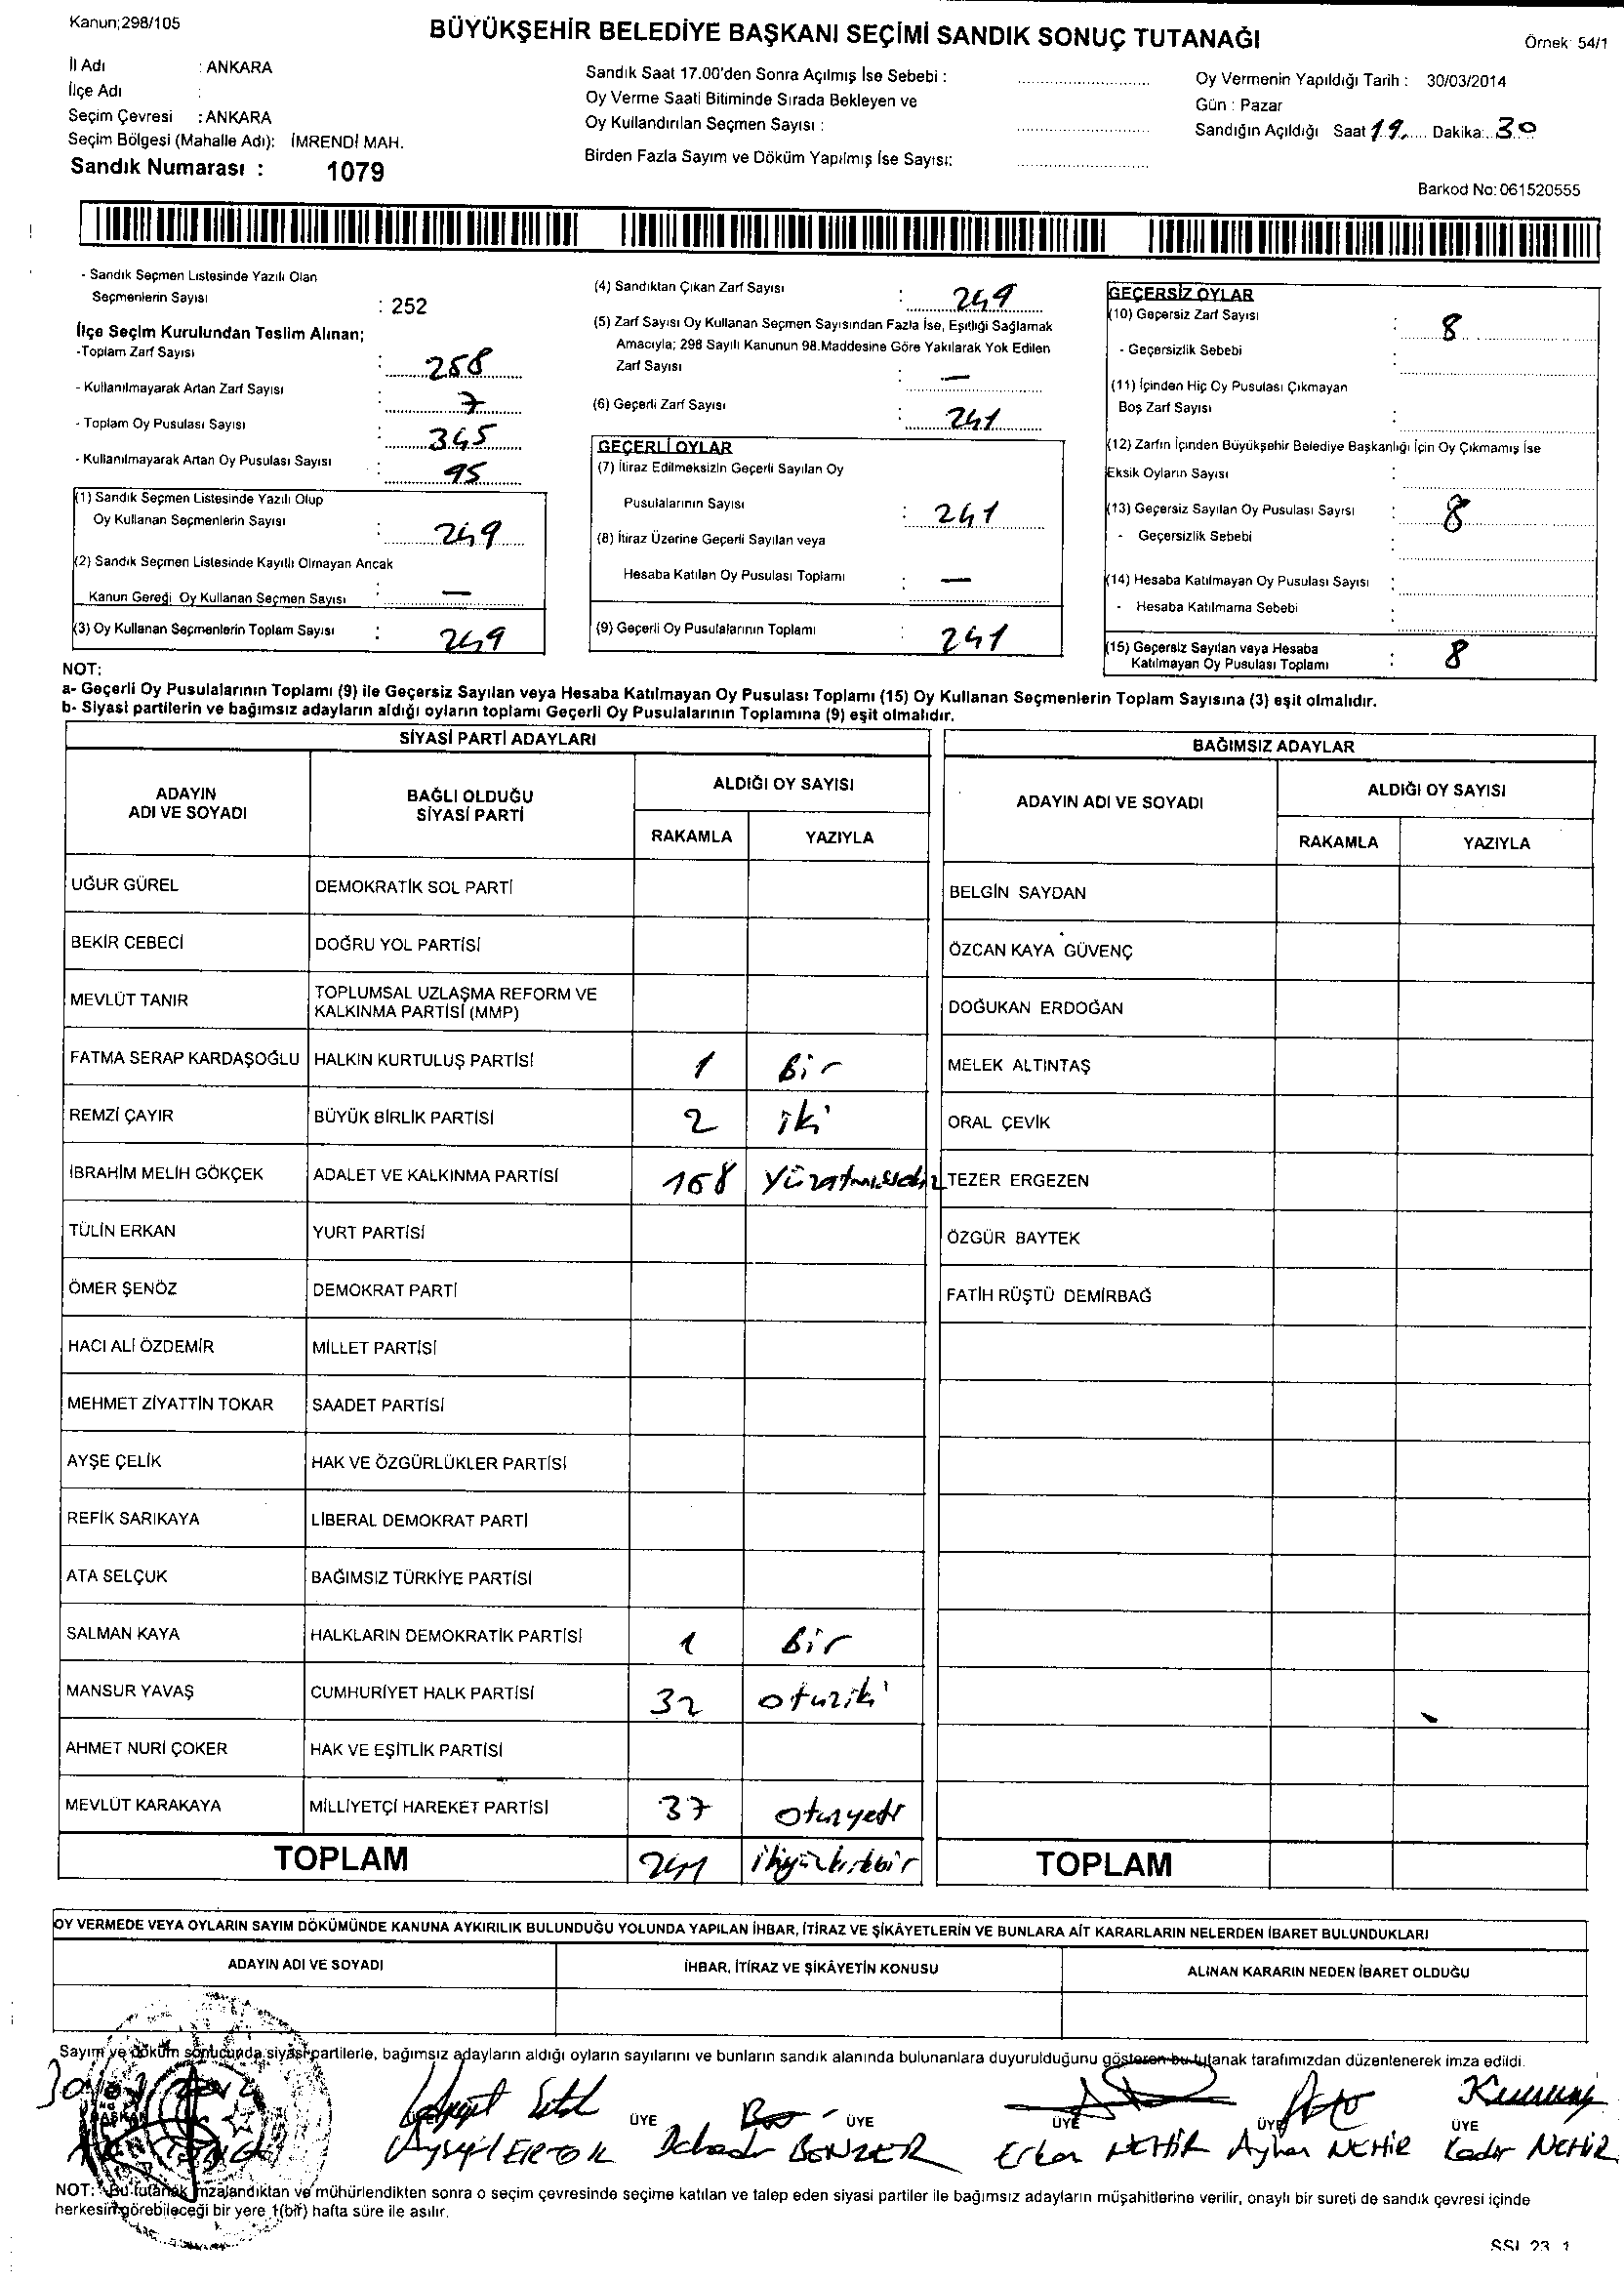 Kanun;298/105
BÜYÜKŞEHİR BELEDİYE BAŞKANI SEÇİMİ SANDIK SONUÇ TUTANAĞI
Örnek 54/1
İl Adı : ANKARA
İlçe Adı :
Seçim Çevresi : ANKARA
Seçim Bölgesi (Mahalle Adı): İMRENDİ MAH.
Sandık Numarası : 1079
Sandık Saat 17.00'den Sonra Açılmış İse Sebebi :
Oy Verme Saati Bitiminde Sırada Bekleyen ve
Oy Kullandırılan Seçmen Sayısı :
Birden Fazla Sayım ve Döküm Yapılmış İse Sayısı:
Oy Vermenin Yapıldığı Tarih : 30/03/2014
Gün : Pazar
Sandığın Açıldığı Saat 19 Dakika: 30
Barkod No:061520555
- Sandık Seçmen Listesinde Yazılı Olan
Seçmenlerin Sayısı : 252
İlçe Seçim Kurulundan Teslim Alınan;
-Toplam Zarf Sayısı : 258
- Kullanılmayarak Artan Zarf Sayısı : 7
- Toplam Oy Pusulası Sayısı : 345
- Kullanılmayarak Artan Oy Pusulası Sayısı : 95
(1) Sandık Seçmen Listesinde Yazılı Olup
Oy Kullanan Seçmenlerin Sayısı : 249
(2) Sandık Seçmen Listesinde Kayıtlı Olmayan Ancak
Kanun Gereği Oy Kullanan Seçmen Sayısı : —
(3) Oy Kullanan Seçmenlerin Toplam Sayısı : 249
(4) Sandıktan Çıkan Zarf Sayısı : 249
(5) Zarf Sayısı Oy Kullanan Seçmen Sayısından Fazla İse, Eşitliği Sağlamak
Amacıyla; 298 Sayılı Kanunun 98.Maddesine Göre Yakılarak Yok Edilen
Zarf Sayısı : —
(6) Geçerli Zarf Sayısı : 241
GEÇERLİ OYLAR
(7) İtiraz Edilmeksizin Geçerli Sayılan Oy
Pusulalarının Sayısı : 241
(8) İtiraz Üzerine Geçerli Sayılan veya
Hesaba Katılan Oy Pusulası Toplamı : —
(9) Geçerli Oy Pusulalarının Toplamı : 241
GEÇERSİZ OYLAR
(10) Geçersiz Zarf Sayısı : 8
- Geçersizlik Sebebi :
(11) İçinden Hiç Oy Pusulası Çıkmayan
Boş Zarf Sayısı :
(12) Zarfın İçinden Büyükşehir Belediye Başkanlığı İçin Oy Çıkmamış İse
Eksik Oyların Sayısı :
(13) Geçersiz Sayılan Oy Pusulası Sayısı : 8
- Geçersizlik Sebebi :
(14) Hesaba Katılmayan Oy Pusulası Sayısı :
- Hesaba Katılmama Sebebi :
(15) Geçersiz Sayılan veya Hesaba
Katılmayan Oy Pusulası Toplamı : 8
NOT:
a- Geçerli Oy Pusulalarının Toplamı (9) ile Geçersiz Sayılan veya Hesaba Katılmayan Oy Pusulası Toplamı (15) Oy Kullanan Seçmenlerin Toplam Sayısına (3) eşit olmalıdır.
b- Siyasi partilerin ve bağımsız adayların aldığı oyların toplamı Geçerli Oy Pusulalarının Toplamına (9) eşit olmalıdır.
SİYASİ PARTİ ADAYLARI
ADAYIN
ADI VE SOYADI
BAĞLI OLDUĞU
SİYASİ PARTİ
ALDIĞI OY SAYISI
RAKAMLA YAZIYLA
UĞUR GÜREL DEMOKRATİK SOL PARTİ
BEKİR CEBECİ DOĞRU YOL PARTİSİ
MEVLÜT TANIR TOPLUMSAL UZLAŞMA REFORM VE
KALKINMA PARTİSİ (MMP)
FATMA SERAP KARDAŞOĞLU HALKIN KURTULUŞ PARTİSİ 1 Bir
REMZİ ÇAYIR BÜYÜK BİRLİK PARTİSİ 2 iki
İBRAHİM MELİH GÖKÇEK ADALET VE KALKINMA PARTİSİ 168 Yüzatmışsekiz
TÜLİN ERKAN YURT PARTİSİ
ÖMER ŞENÖZ DEMOKRAT PARTİ
HACI ALİ ÖZDEMİR MİLLET PARTİSİ
MEHMET ZİYATTİN TOKAR SAADET PARTİSİ
AYŞE ÇELİK HAK VE ÖZGÜRLÜKLER PARTİSİ
REFİK SARIKAYA LİBERAL DEMOKRAT PARTİ
ATA SELÇUK BAĞIMSIZ TÜRKİYE PARTİSİ
SALMAN KAYA HALKLARIN DEMOKRATİK PARTİSİ 1 Bir
MANSUR YAVAŞ CUMHURİYET HALK PARTİSİ 32 otuziki
AHMET NURİ ÇOKER HAK VE EŞİTLİK PARTİSİ
MEVLÜT KARAKAYA MİLLİYETÇİ HAREKET PARTİSİ 37 Otuzyedi
TOPLAM 241 ikiyüzkırkbir
BAĞIMSIZ ADAYLAR
ADAYIN ADI VE SOYADI
ALDIĞI OY SAYISI
RAKAMLA YAZIYLA
BELGİN SAYDAN
ÖZCAN KAYA GÜVENÇ
DOĞUKAN ERDOĞAN
MELEK ALTINTAŞ
ORAL ÇEVİK
TEZER ERGEZEN
ÖZGÜR BAYTEK
FATİH RÜŞTÜ DEMİRBAĞ
TOPLAM
OY VERMEDE VEYA OYLARIN SAYIM DÖKÜMÜNDE KANUNA AYKIRILIK BULUNDUĞU YOLUNDA YAPILAN İHBAR, İTİRAZ VE ŞİKÂYETLERİN VE BUNLARA AİT KARARLARIN NELERDEN İBARET BULUNDUKLARI
ADAYIN ADI VE SOYADI İHBAR, İTİRAZ VE ŞİKÂYETİN KONUSU ALINAN KARARIN NEDEN İBARET OLDUĞU
Sayım ve döküm sonucunda siyasi partilerle, bağımsız adayların aldığı oyların sayılarını ve bunların sandık alanında bulunanlara duyurulduğunu gösteren bu tutanak tarafımızdan düzenlenerek imza edildi.
30/03/2014
BAŞKAN ÜYE ÜYE ÜYE ÜYE ÜYE
Erkan NEHİR Ayhan NEHİR Kadir NEHİR
NOT: Bu tutanak imzalandıktan ve mühürlendikten sonra o seçim çevresinde seçime katılan ve talep eden siyasi partiler ile bağımsız adayların müşahitlerine verilir, onaylı bir sureti de sandık çevresi içinde
herkesin görebileceği bir yere 1(bir) hafta süre ile asılır.